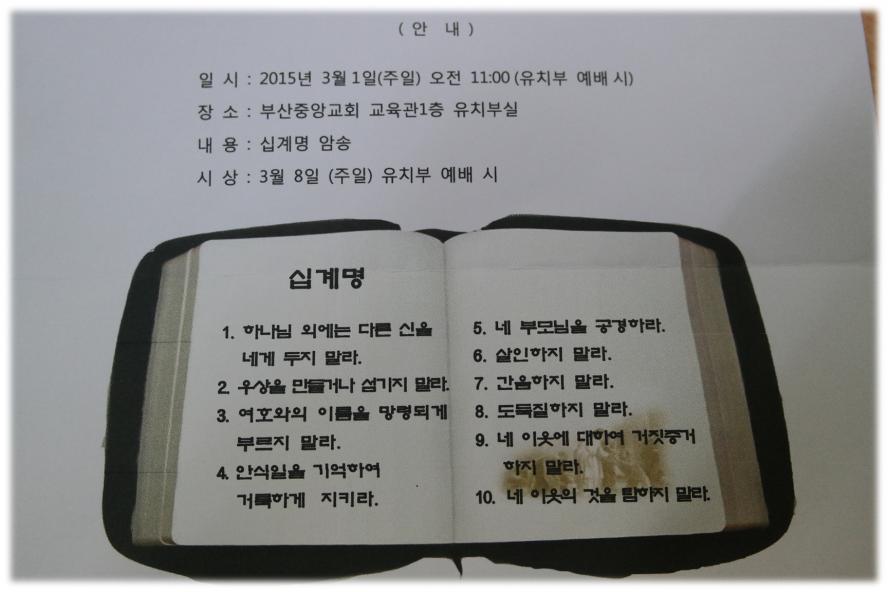 ( 안 내 )
일 시 : 2015년 3월 1일(주일) 오전 11:00 (유치부 예배 시)
장 소 : 부산중앙교회 교육관1층 유치부실
내 용 : 십계명 암송
시 상 : 3월 8일 (주일) 유치부 예배 시
십계명
1. 하나님 외에는 다른 신을
네게 두지 말라.
2. 우상을 만들거나 섬기지 말라.
3. 여호와의 이름을 망령되게
부르지 말라.
4. 안식일을 기억하여
거룩하게 지키라.
5. 네 부모님을 공경하라.
6. 살인하지 말라.
7. 간음하지 말라.
8. 도둑질하지 말라.
9. 네 이웃에 대하여 거짓증거
하지 말라.
10. 네 이웃의 것을 탐하지 말라.